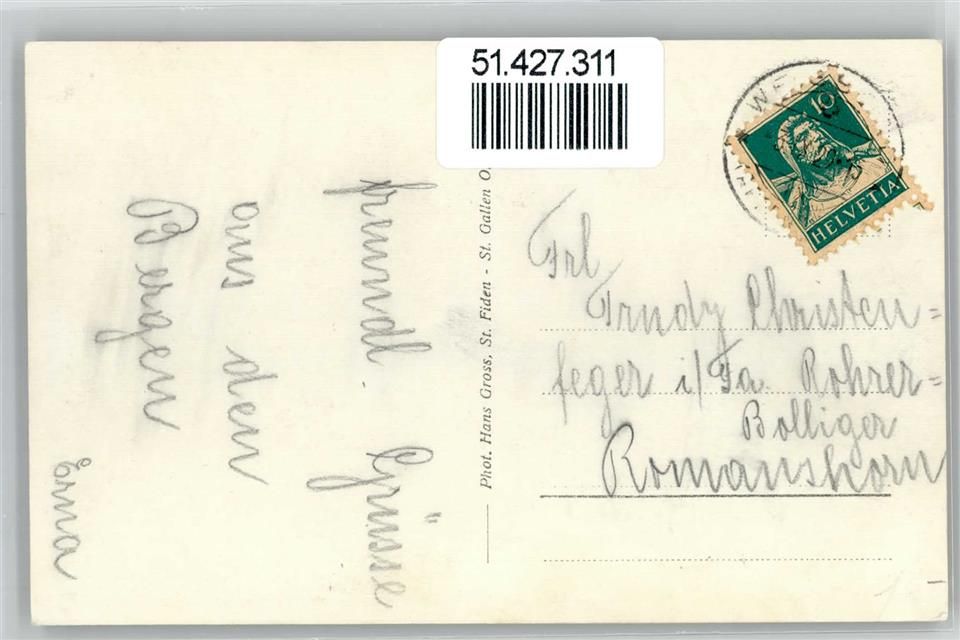 51.427.311
10
HELVETIA
Phot. Hans Gross, St. Fiden - St. Gallen O.
freundl. Grüsse
aus den
Bergen
Erna
Frl
Trudy Christen=
feger i/Fa. Rohrer=
Bolliger
Romanshorn